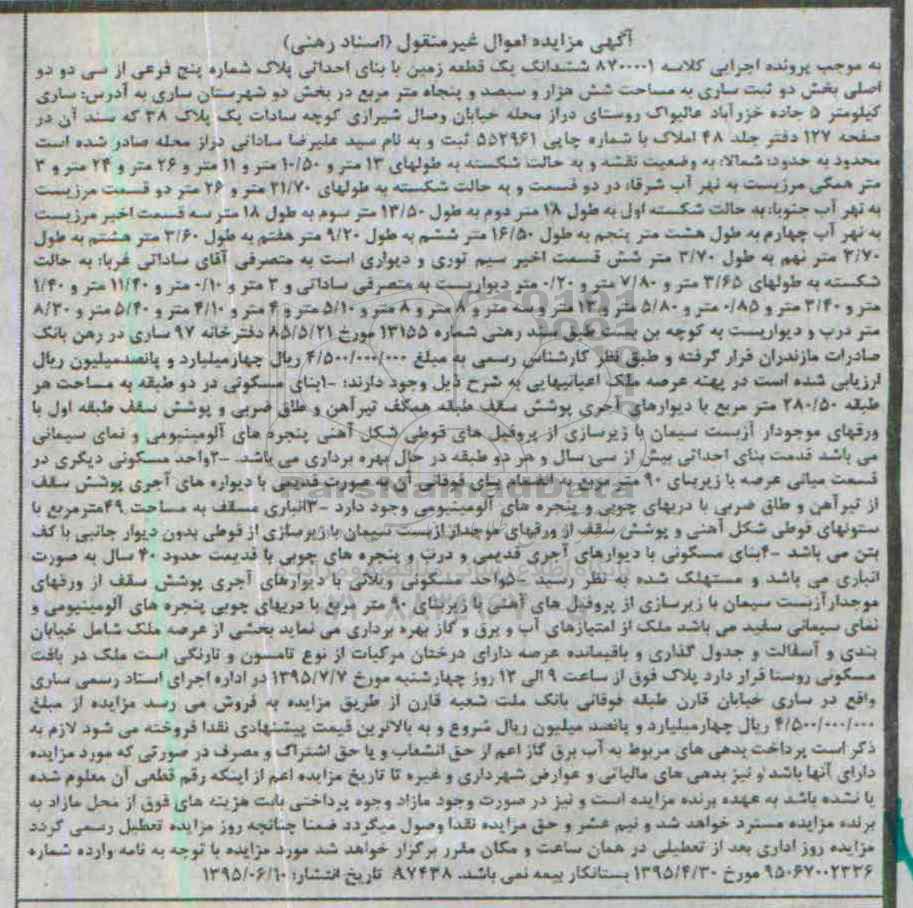 آگهی مزایده اموال غیرمنقول (اسناد رهنی)
به موجب پرونده اجرایی کلاسه ۸۷۰۰۰۰۱ ششدانگ یک قطعه زمین با بنای احداثی پلاک شماره پنج فرعی از سی دو دو
اصلی بخش دو ثبت ساری به مساحت شش هزار و سیصد و پنجاه متر مربع در بخش دو شهرستان ساری به آدرس: ساری
کیلومتر ۵ جاده خزرآباد عالیواک روستای دراز محله خیابان وصال شیرازی کوچه سادات یک پلاک ۳۸ که سند آن در
صفحه ۱۲۷ دفتر جلد ۴۸ املاک با شماره چاپی ۵۵۲۹۶۱ ثبت و به نام سید علیرضا ساداتی دراز محله صادر شده است
محدود به حدود: شمالا: به وضعیت نقشه و به حالت شکسته به طولهای ۱۳ متر و ۱۰/۵۰ متر و ۱۱ متر و ۲۶ متر و ۲۴ متر و ۳
متر همگی مرزیست به نهر آب شرقا: در دو قسمت و به حالت شکسته به طولهای ۲۱/۷۰ متر و ۲۶ متر دو قسمت مرزیست
به نهر آب جنوبا: به حالت شکسته اول به طول ۱۸ متر دوم به طول ۱۳/۵۰ متر سوم به طول ۱۸ متر سه قسمت اخیر مرزیست
به نهر آب چهارم به طول هشت متر پنجم به طول ۱۶/۵۰ متر ششم به طول ۹/۲۰ متر هفتم به طول ۳/۶۰ متر هشتم به طول
۲/۷۰ متر نهم به طول ۳/۷۰ متر شش قسمت اخیر سیم توری و دیواری است به متصرفی آقای ساداتی غربا: به حالت
شکسته به طولهای ۳/۶۵ متر و ۷/۸۰ متر و ۰/۲۰ متر دیواریست به متصرفی ساداتی و ۳ متر و ۰/۱۰ متر و ۱۱/۴۰ متر و ۱/۴۰
متر و ۳/۴۰ متر و ۰/۸۵ متر و ۵/۸۰ متر و ۱۳ متر و سه متر و ۸ متر و ۸ متر و ۵/۱۰ متر و ۴ متر و ۴/۱۰ متر و ۵/۴۰ متر و ۸/۳۰
متر درب و دیواریست به کوچه بن بست طبق سند رهنی شماره ۱۳۱۵۵ مورخ ۸۵/۵/۲۱ دفترخانه ۹۷ ساری در رهن بانک
صادرات مازندران قرار گرفته و طبق نظر کارشناس رسمی به مبلغ ۴/۵۰۰/۰۰۰/۰۰۰ ریال چهارمیلیارد و پانصدمیلیون ریال
ارزیابی شده است در پهنه عرصه ملک اعیانیهایی به شرح ذیل وجود دارند: ۱-بنای مسکونی در دو طبقه به مساحت هر
طبقه ۲۸۰/۵۰ متر مربع با دیوارهای آجری پوشش سقف طبقه همکف تیرآهن و طاق ضربی و پوشش سقف طبقه اول با
ورقهای موجودار آزبست سیمان با زیرسازی از پروفیل های قوطی شکل آهنی پنجره های آلومینیومی و نمای سیمانی
می باشد قدمت بنای احداثی بیش از سی سال و هر دو طبقه در حال بهره برداری می باشد. ۲-واحد مسکونی دیگری در
قسمت میانی عرصه با زیربنای ۹۰ متر مربع به انضمام بنای فوقانی آن به صورت قدیمی با دیواره های آجری پوشش سقف
از تیرآهن و طاق ضربی با دربهای چوبی و پنجره های آلومینیومی وجود دارد ۳-انباری مسقف به مساحت ۴۹مترمربع با
ستونهای قوطی شکل آهنی و پوشش سقف از ورقهای موجدار ازبست سیمان با زیرسازی از قوطی بدون دیوار جانبی با کف
بتن می باشد ۴-بنای مسکونی با دیوارهای آجری قدیمی و درب و پنجره های چوبی با قدیمت حدود ۴۰ سال به صورت
انباری می باشد و مستهلک شده به نظر رسید ۵-واحد مسکونی ویلائی با دیوارهای آجری پوشش سقف از ورقهای
موجدارآزبست سیمان با زیرسازی از پروفیل های آهنی با زیربنای ۹۰ متر مربع با دربهای چوبی پنجره های آلومینیومی و
نمای سیمانی سفید می باشد ملک از امتیازهای آب و برق و گاز بهره برداری می نماید بخشی از عرصه ملک شامل خیابان
بندی و آسفالت و جدول گذاری و باقیمانده عرصه دارای درختان مرکبات از نوع تامسون و نارنگی است ملک در بافت
مسکونی روستا قرار دارد پلاک فوق از ساعت ۹ الی ۱۲ روز چهارشنبه مورخ ۱۳۹۵/۷/۷ در اداره اجرای اسناد رسمی ساری
واقع در ساری خیابان قارن طبقه فوقانی بانک ملت شعبه قارن از طریق مزایده به فروش می رسد مزایده از مبلغ
۴/۵۰۰/۰۰۰/۰۰۰ ریال چهارمیلیارد و پانصد میلیون ریال شروع و به بالاترین قیمت پیشنهادی نقدا فروخته می شود لازم به
ذکر است پرداخت بدهی های مربوط به آب برق گاز اعم از حق انشعاب و یا حق اشتراک و مصرف در صورتی که مورد مزایده
دارای آنها باشد و نیز بدهی های مالیاتی و عوارض شهرداری و غیره تا تاریخ مزایده اعم از اینکه رقم قطعی آن معلوم شده
یا نشده باشد به عهده برنده مزایده است و نیز در صورت وجود مازاد وجوه پرداختی بابت هزینه های فوق از محل مازاد به
برنده مزایده مسترد خواهد شد و نیم عشر و حق مزایده نقدا وصول میگردد ضمنا چنانچه روز مزایده تعطیل رسمی گردد
مزایده روز اداری بعد از تعطیلی در همان ساعت و مکان مقرر برگزار خواهد شد مورد مزایده با توجه به نامه وارده شماره
۹۵۰۶۷۰۰۲۳۳۶ مورخ ۱۳۹۵/۴/۳۰ بستانکار بیمه نمی باشد. ۹۷۴۳۸ تاریخ انتشار: ۱۳۹۵/۰۶/۱۰
ParsNamadData